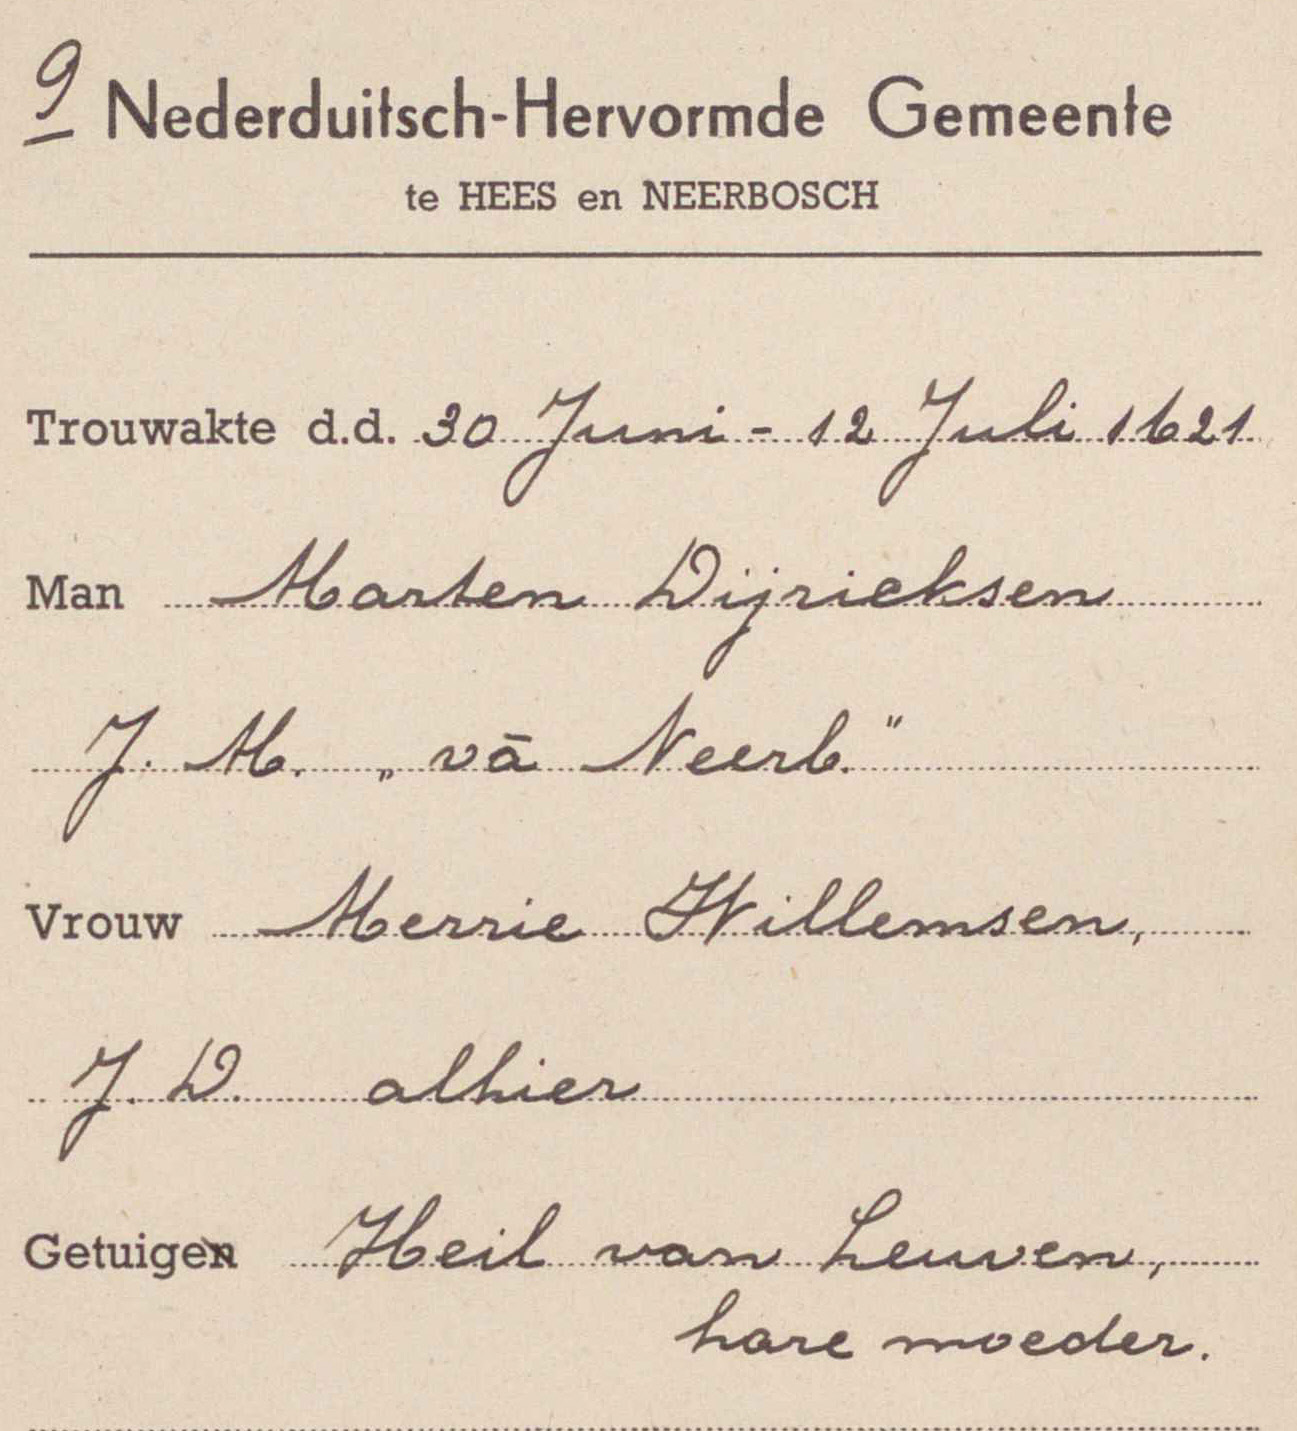 9 Nederduitsch-Hervormde Gemeente
te HEES en NEERBOSCH
Trouwakte d.d. 30 Juni - 12 Juli 1621
Man Marten Dijrieksen
J. M. „ vā Neerb."
Vrouw Merrie Willemsen,
J. D. alhier
Getuigen Heil van Leuven,
hare moeder.